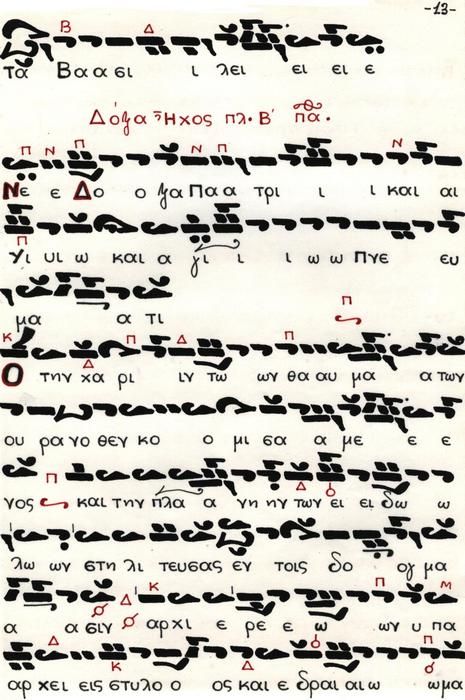 -13-
Β Δ
τα Βα α σι ι λει ει ει ε
Δόξα Ἦχος πλ. Β΄ πα.
Π Ν Π Ν Π Ν
Νε ε Δο ο ξα Πα α τρι ι ι και αι
Π
Υι υι ω και α γι ι ι ω ω Πνε ευ
μα α τι
Π
Κ Π Δ Π
Δ
Ο την χα ρι ιν τω ων θα αυ μα α των
ου ρα νο θεν κο ο μι σα α με ε ε
Π
Δ
νος και την πλα α νη ην των ει ει δω ω
λω ων στη λι τευσας εν τοις δο ογ μα
Δ Κ Π Μ
α α σιν αρ χι ε ρε ε ω ων υ πα
Δ Δ Π
Κ
αρ χει εις στυλο ο ος και ε δραι αι ω ωμα